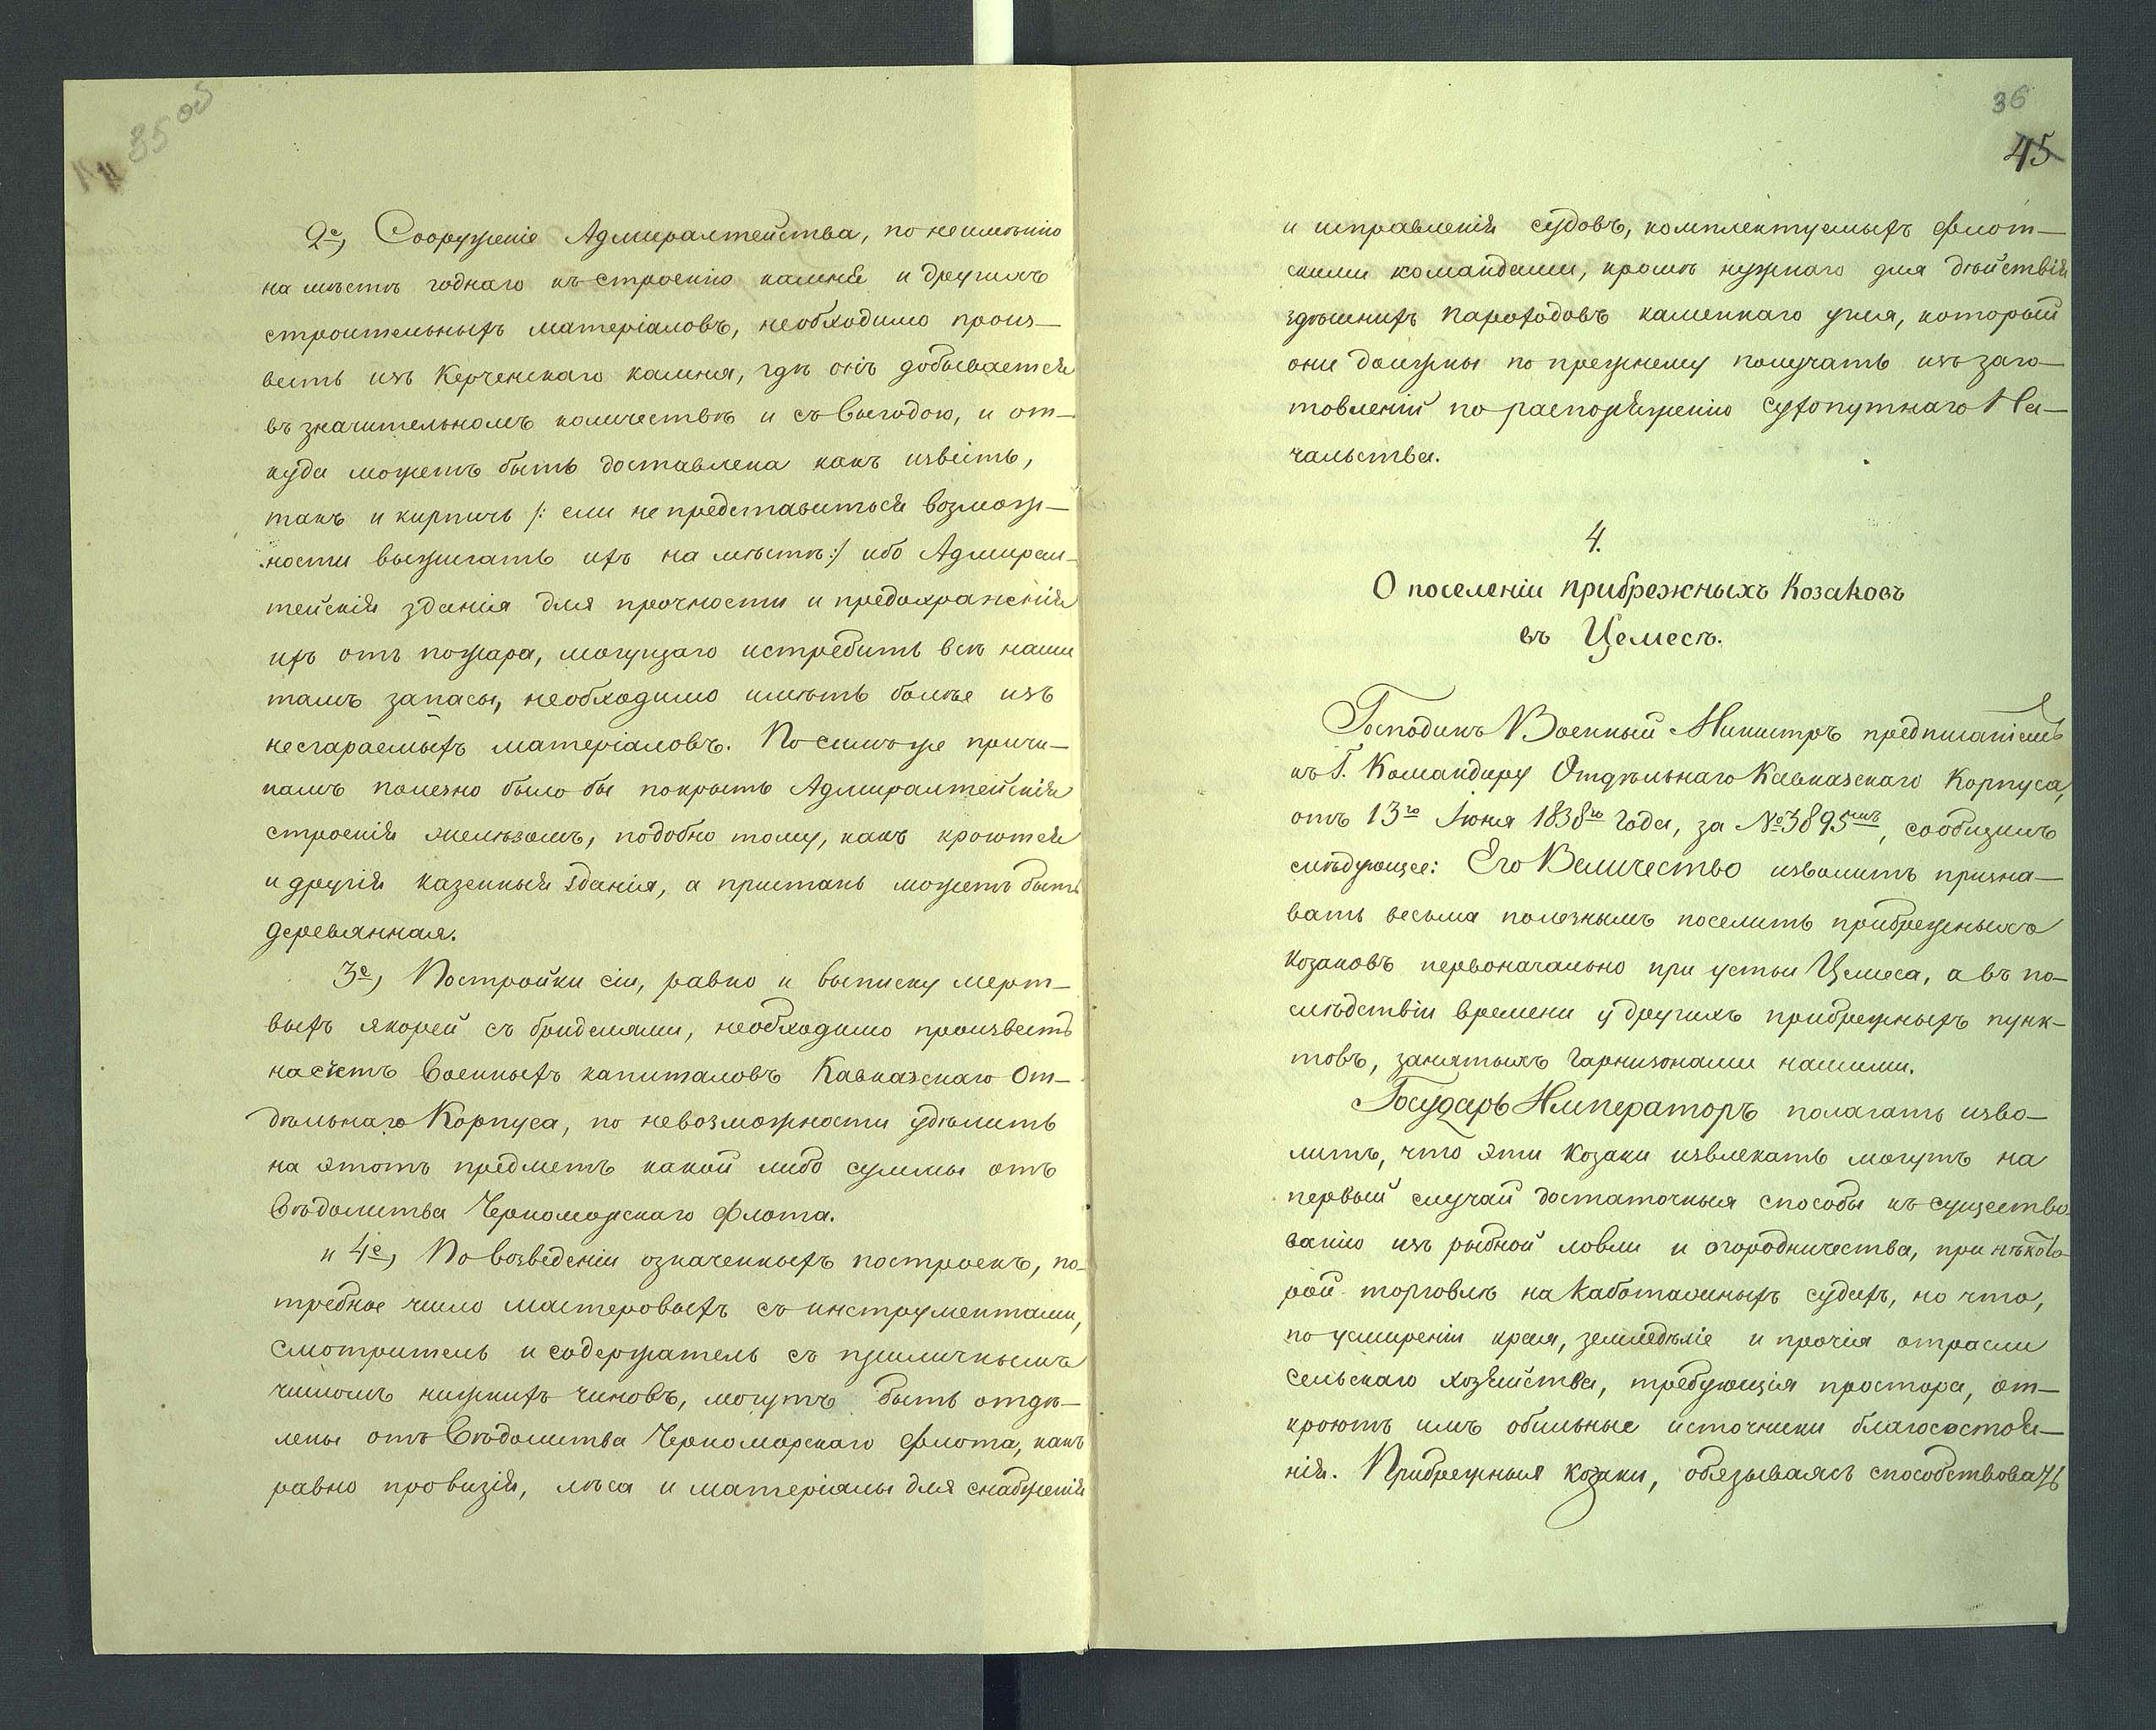 35 об
2е, Сооруженіе Адмиралтейства, по неимѣнію
на мѣстѣ годнаго къ строенію камня и другихъ
строительныхъ матеріаловъ, необходимо произ-
весть изъ Керченскаго камня, гдѣ онъ добывается
въ значительномъ количествѣ и съ выгодою, и от-
куда можетъ быть доставлена какъ известь,
такъ и кирпичъ /: если не представиться возмож-
ности выжигать ихъ на мѣстѣ:/ ибо Адмирал-
тейскія зданія для прочности и предохраненія
ихъ отъ пожара, могущаго истребить всѣ наши
тамъ запасы, необходимо имѣть болѣе изъ
несгараемыхъ матеріаловъ. По симъ же причи-
намъ полезно было бы покрыть Адмиралтейскія
строенія желѣзомъ, подобно тому, какъ кроются
и другія казенныя зданія, а пристань можетъ быть
деревянная.
3е, Постройки сіи, равно и выписку мерт-
выхъ якорей съ бриделями, необходимо произвесть
на счетъ военныхъ капиталовъ Кавказскаго От-
дѣльнаго Корпуса, по невозможности удѣлить
на этотъ предметъ какой либо суммы отъ
Вѣдомства Черноморскаго флота.
и 4е, По возведеніи означенныхъ построекъ, по-
требное число мастеровыхъ съ инструментами,
смотритель и содержатель съ приличнымъ
числомъ нижнихъ чиновъ, могутъ быть отдѣ-
лены отъ Вѣдомства Черноморскаго флота, какъ
равно провизія, лѣса и матеріалы для снабженія
36
45
и исправленія судовъ, комплектуемыхъ флот-
скими командами, кромѣ нужнаго для дѣйствія
здѣшнихъ пароходовъ каменнаго угля, который
они должны по прежнему получать изъ заго-
товленій по распоряженію сухопутнаго На-
чальства.
4.
О поселеніи прибрежныхъ Козаковъ
въ Цемесѣ.
Господинъ Военный Министръ предписаніемъ
къ Г. Командиру Отдѣльнаго Кавказскаго Корпуса,
отъ 13го Іюня 1838го года, за №3895мъ, сообщилъ
слѣдующее: Его Величество изволитъ призна-
вать весьма полезнымъ поселить прибрежныхъ
козаковъ первоначально при устьи Цемеса, а въ по-
слѣдствіи времени у другихъ прибрежныхъ пунк-
товъ, занятыхъ гарнизонами нашими.
Государь Императоръ полагать изво-
литъ, что эти козаки извлекать могутъ на
первый случай достаточныя способы къ существо-
ванію изъ рыбной ловли и огородничества, при нѣкото-
рой торговлѣ на каботажныхъ судахъ, но что,
по усмиреніи края, земледѣліе и прочія отрасли
сельскаго хозяйства, требующія простора, от-
кроютъ имъ обильные источники благосостоя-
нія. Прибрежныя козаки, обязываясь способствовать